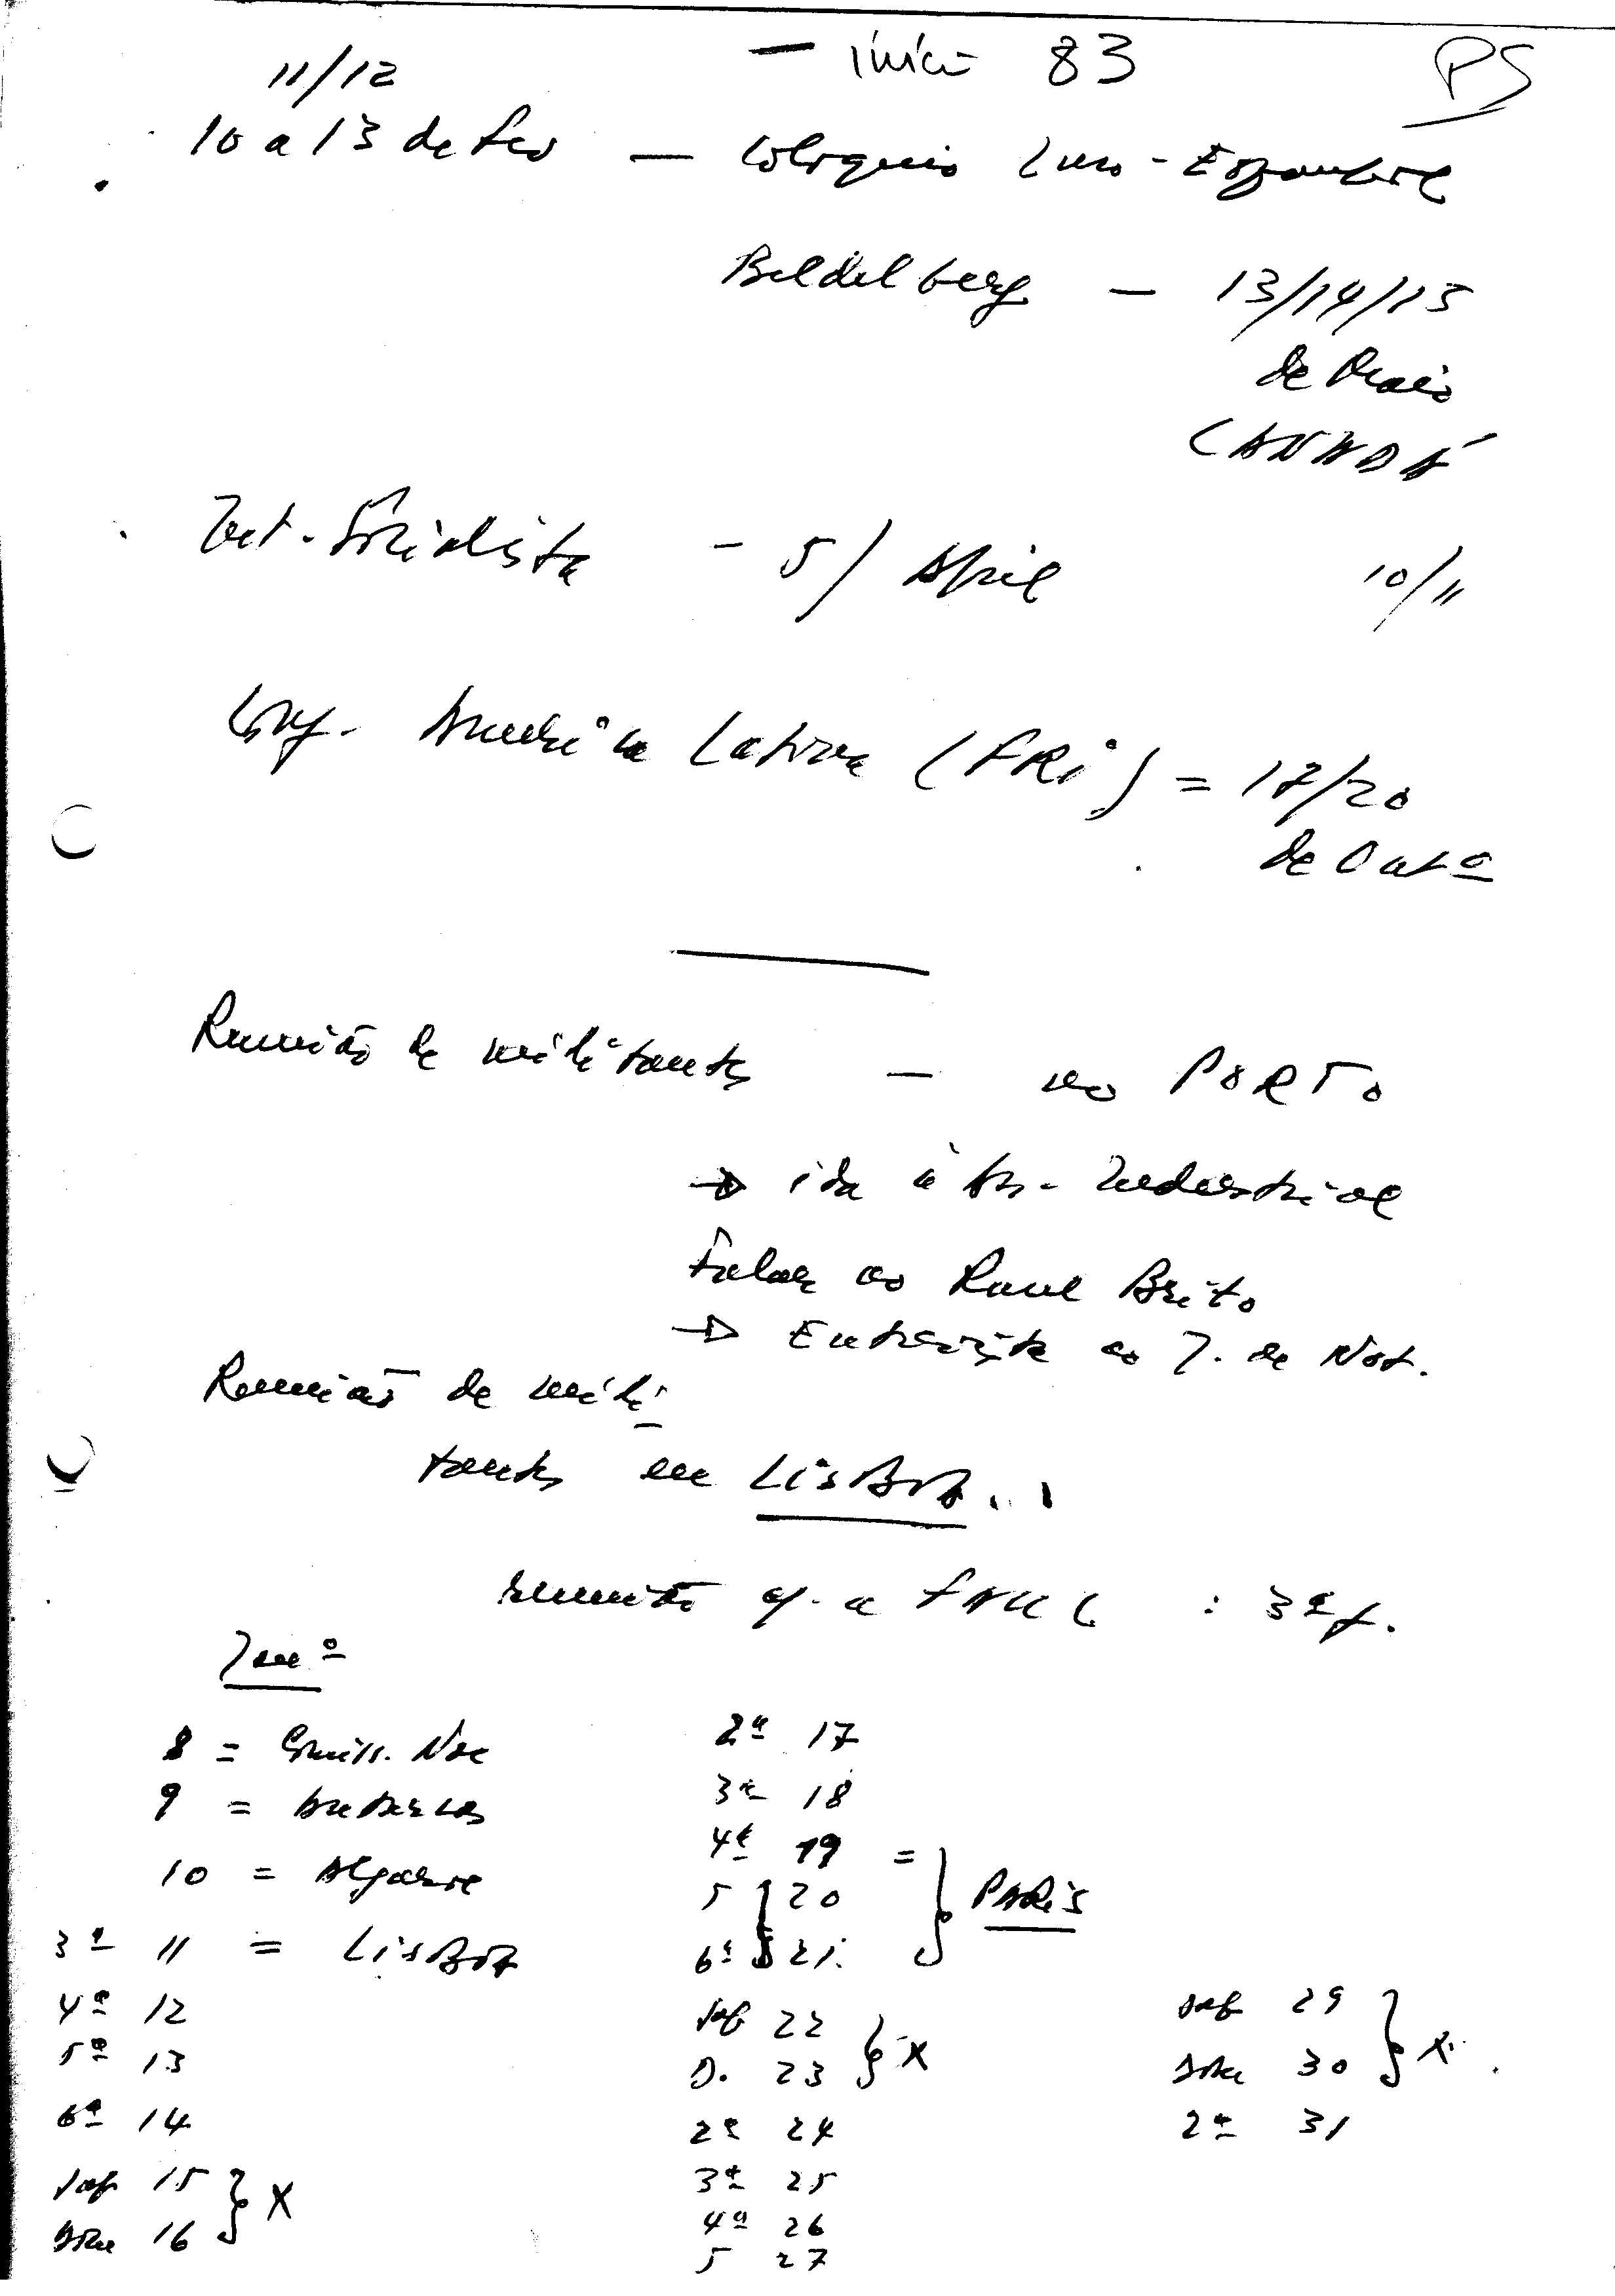 — início 83
PS
11/12
10 a 13 de Fev — Coloquio Luso-Espanhol
Beldelberg — 13/14/15
de Maio
CANADÁ
Int. Socialista - 5/ Abril 10/11
Conf. América Latina (FRI) = 17/20
de Outº
Reunião de militantes — no PORTO
→ ida à As. Industrial
Falar ao Raul Brito
→ Entrevista ao J. de Not.
Reunião de mili-
tantes em LISBOA..
reunião c/. a : 3ª f.
Janº
8 = Comiss. Nac
9 =
10 = Algarve
3ª 11 = LISBOA
4ª 12
5ª 13
6ª 14
sab 15 } X
Dom 16
2ª 17
3ª 18
4ª 19 =
5 20 } PARIS
6ª 21.
sab 22 } X
D. 23
2ª 24
3ª 25
4ª 26
5 27
sab 29 } X.
Dom 30
2ª 31